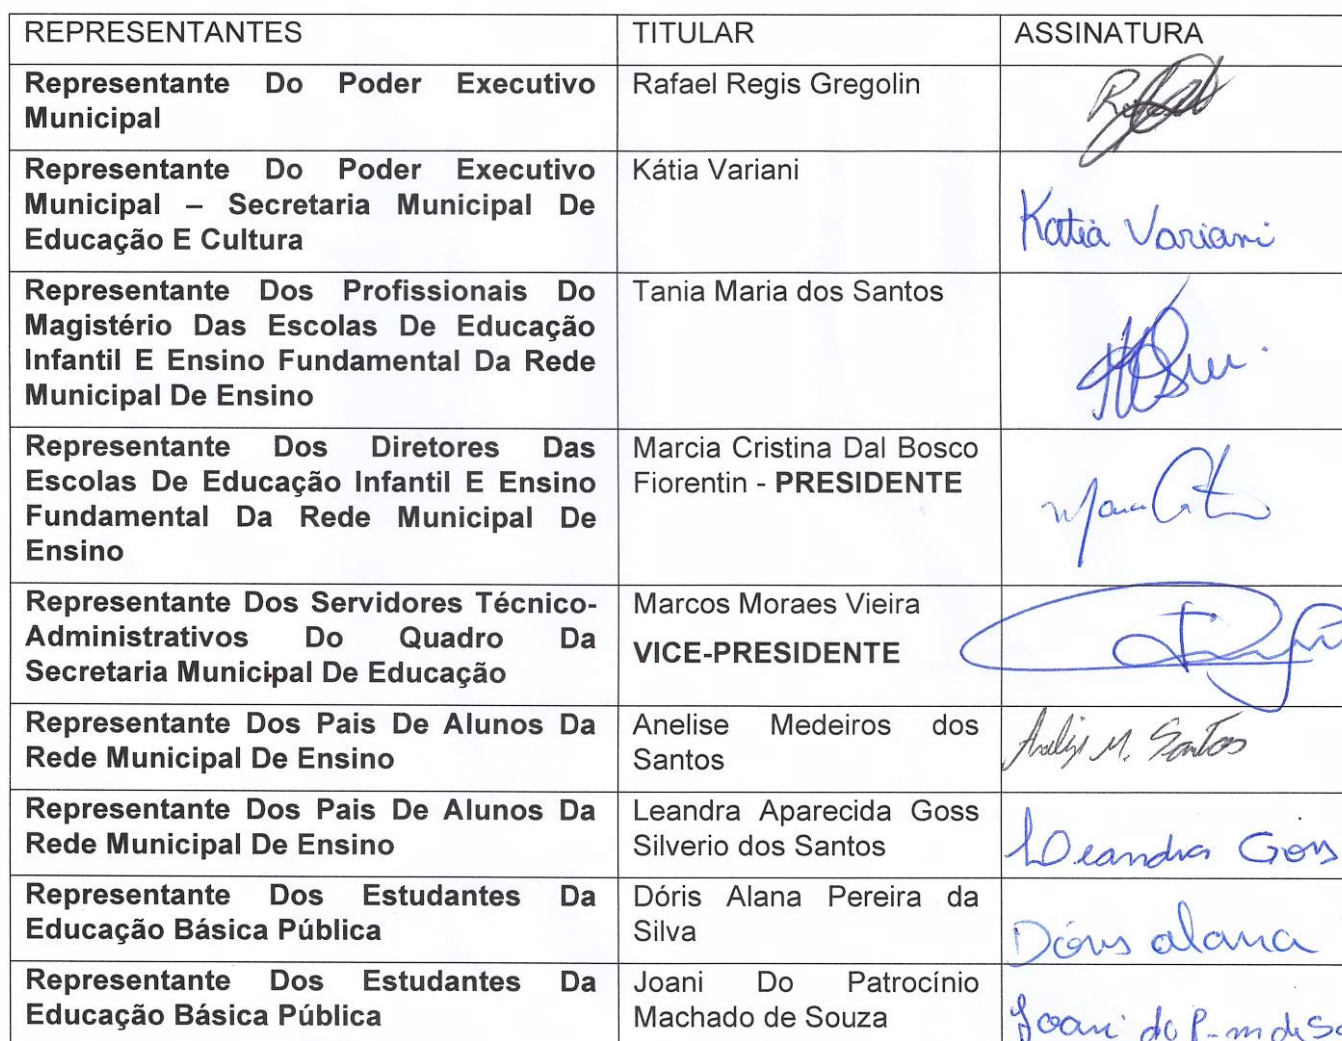 REPRESENTANTES TITULAR ASSINATURA
Representante Do Poder Executivo
Municipal
Rafael Regis Gregolin
Representante Do Poder Executivo
Municipal – Secretaria Municipal De
Educação E Cultura
Kátia Variani
Katia Variani
Representante Dos Profissionais Do
Magistério Das Escolas De Educação
Infantil E Ensino Fundamental Da Rede
Municipal De Ensino
Tania Maria dos Santos
Representante Dos Diretores Das
Escolas De Educação Infantil E Ensino
Fundamental Da Rede Municipal De
Ensino
Marcia Cristina Dal Bosco
Fiorentin - PRESIDENTE
Representante Dos Servidores Técnico-
Administrativos Do Quadro Da
Secretaria Municipal De Educação
Marcos Moraes Vieira
VICE-PRESIDENTE
Representante Dos Pais De Alunos Da
Rede Municipal De Ensino
Anelise Medeiros dos
Santos
M. Santos
Representante Dos Pais De Alunos Da
Rede Municipal De Ensino
Leandra Aparecida Goss
Silverio dos Santos
Leandra Goss
Representante Dos Estudantes Da
Educação Básica Pública
Dóris Alana Pereira da
Silva
Dóris alana
Representante Dos Estudantes Da
Educação Básica Pública
Joani Do Patrocínio
Machado de Souza
Joani do P. m de So